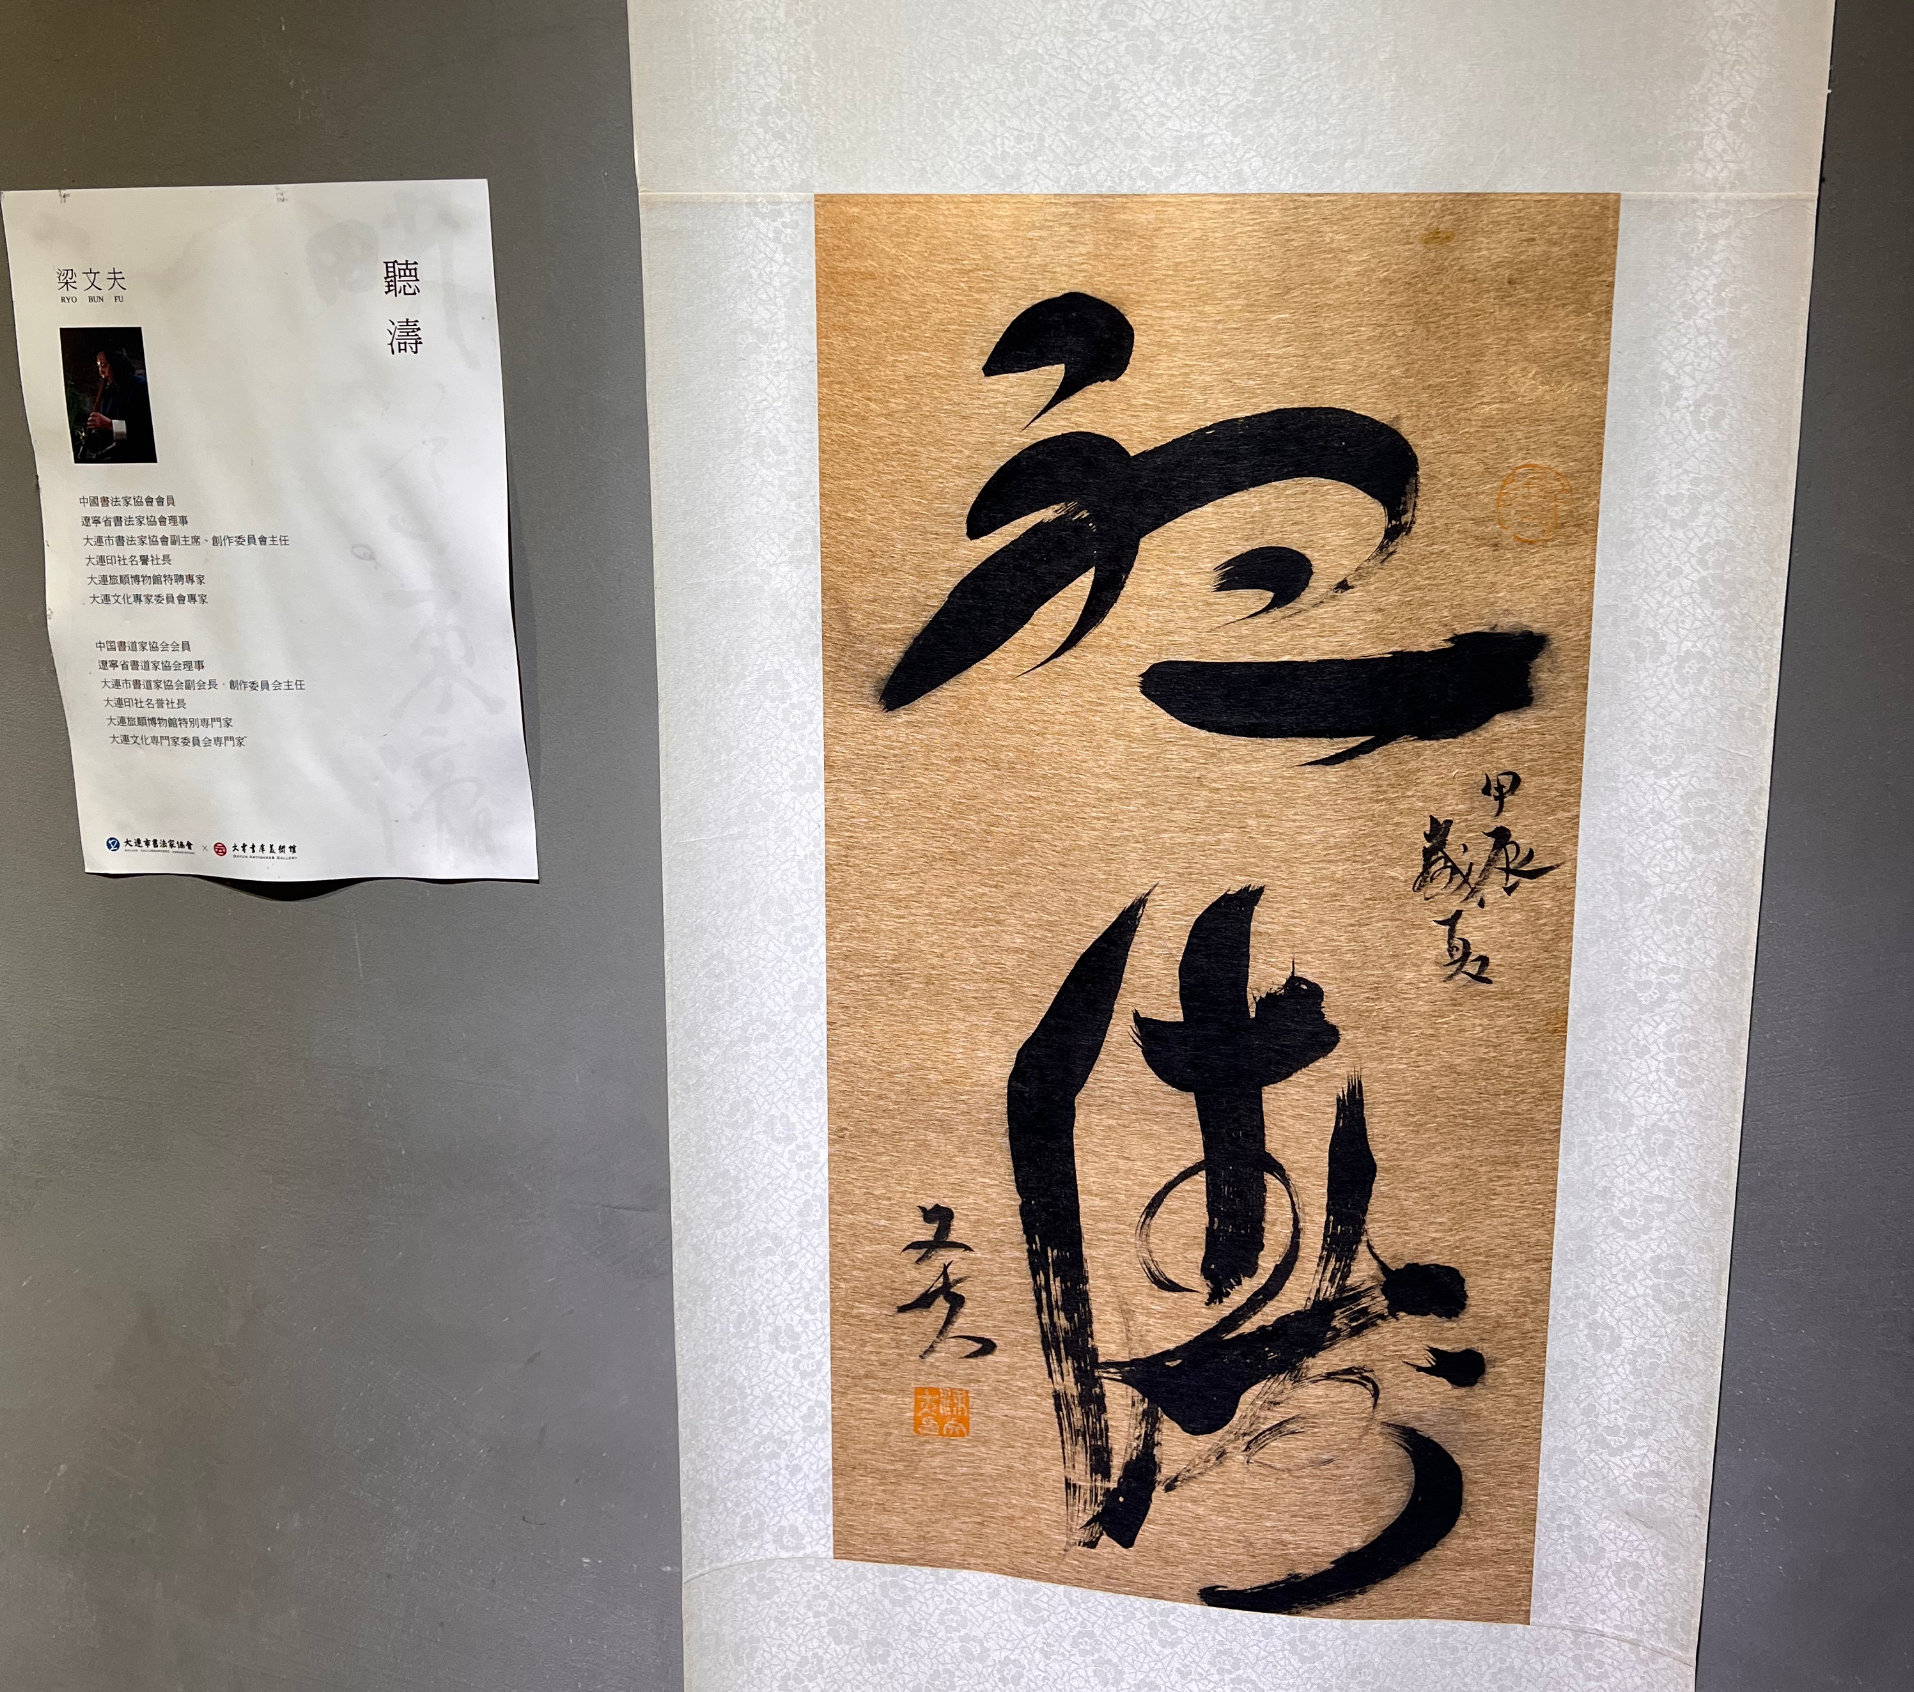 聽濤
梁文夫
RYO BUN FU
中國書法家協會會員
遼寧省書法家協會理事
大連市書法家協會副主席、創作委員會主任
大連印社名譽社長
大連旅順博物館特聘專家
大連文化專家委員會專家
中国書道家協会会員
遼寧省書道家協会理事
大連市書道家協会副会長・創作委員会主任
大連印社名誉社長
大連旅順博物館特別専門家
大連文化専門家委員会専門家
大連市書法家協會 × 大雲書庫美術館
甲辰
歲夏
文夫